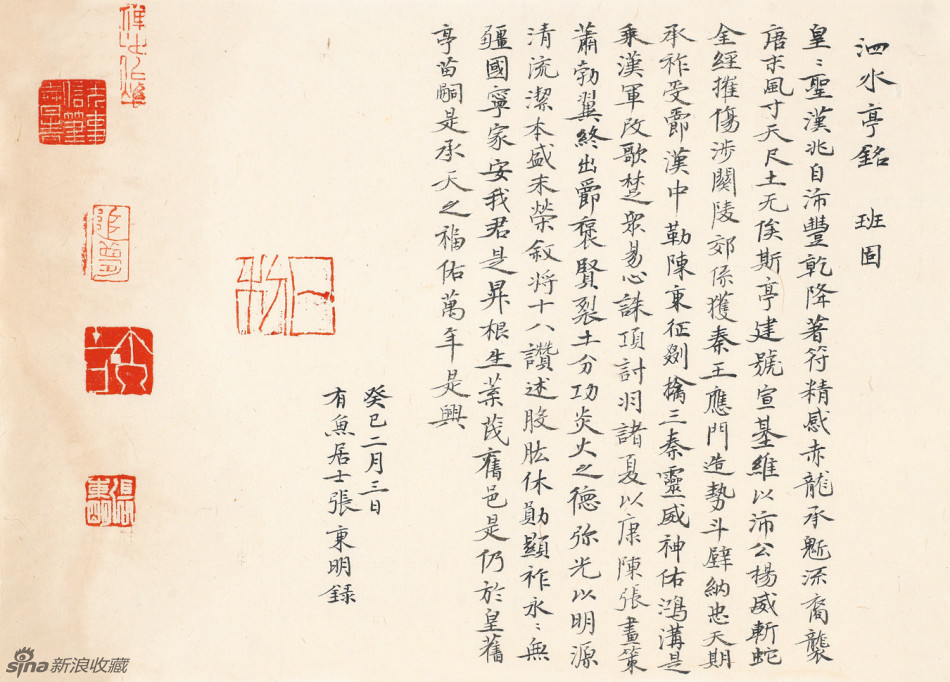 泗水亭銘 班固
皇〻聖漢兆自沛豐乾降著符精感赤龍承魁流裔襲
唐末風寸天尺土无俟斯亭建號宣基維以沛公楊威斬蛇
金經摧傷涉關陵郊係獲秦王應門造勢斗壁納忠天期
承祚受爵漢中勒陳東征剟擒三秦靈威神佑鴻溝是
乘漢軍改歌楚眾易心誅項討羽諸夏以康陳張畫策
蕭勃翼終出爵褒賢裂土分功炎火之德弥光以明源
清流潔本盛末榮敘將十八讚述股肱休勛顯祚永〻無
疆國寧家安我君是昇根生葉茂舊邑是仍於皇舊
亭苗嗣是承天之福佑萬年是興
癸巳二月三日
有魚居士張東明錄
日利
張東明
sina新浪收藏